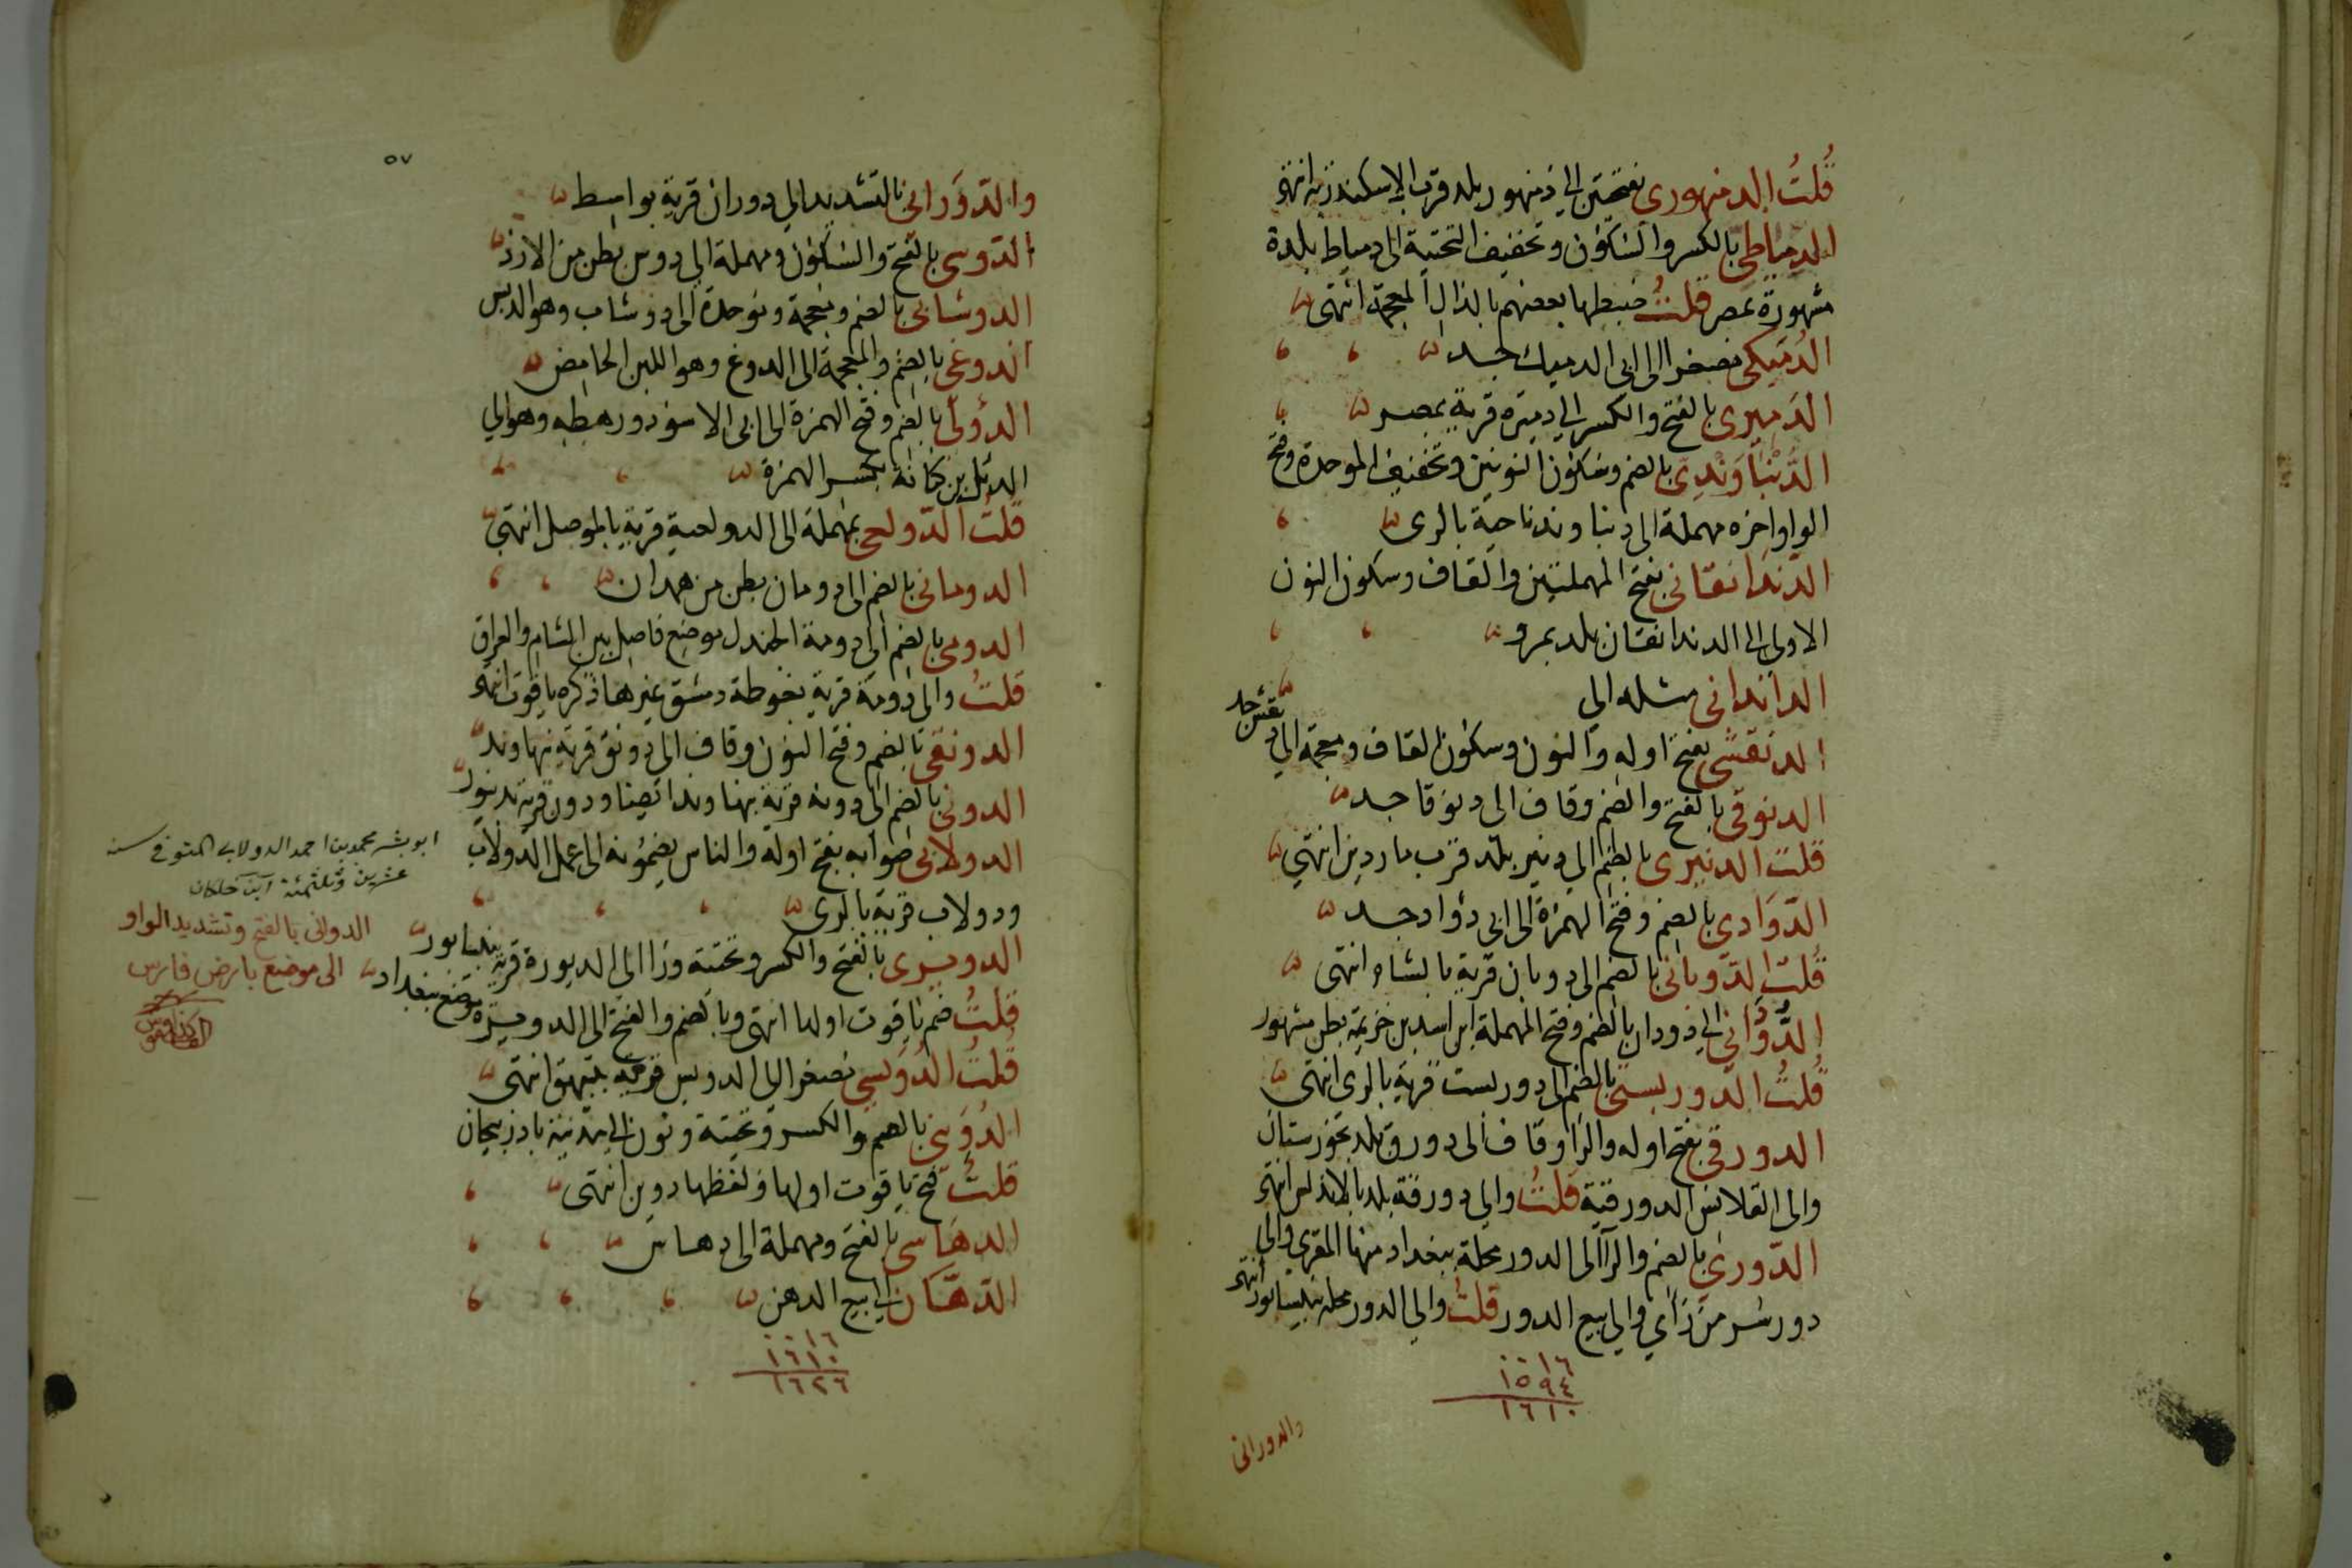 قُلتُ الدمنهوري بفتحتين الى دمنهور بلد قرب الاسكندرية انتهى
الدمياطي بالكسر والسكون وتخفيف التحتية الى دمياط بلدة
مشهورة بمصر قلتُ ضبطها بعضهم بالذال المعجمة انتهى
الدُميكي مصغرا الى ابي الدميك جد
الدَميري بالفتح والكسر الى دميره قرية بمصر
الدُنْبَاوَنْدِي بالضم وسكون النونين وتخفيف الموحدة وفتح
الواو اخره مهملة الى دنباوند ناحية بالرى
الدَندانقاني بفتح المهملتين والقاف وسكون النون
الاولى الى الدندانقان بلد بمرو
الدانداني مثله الى
الدنقشي بفتح اوله والنون وسكون القاف ومعجمة الى دنقش جد
الدنوقي بالفتح والضم وقاف الى دنوقا جد
قلت الدنيري بالضم الى دنير بلد قرب ماردين انتهى
الدّوَادي بالضم وفتح الهمزة الى ابي دؤاد جد
قُلتُ الدّوباني بالضم الى دوبان قرية بالشام انتهى
الدُّودَاني الى دودان بالضم وفتح المهملة ابن اسد بن خزيمة بطن مشهور
قُلتُ الدوريستي بالضم الى دوريست قرية بالرى انتهى
الدورقي بفتح اوله والرا وقاف الى دورق بلد بخوزستان
والى القلانس الدورقية قلتُ والى دورقة بلد بالاندلس انتهى
الدّوري بالضم والرآ الى الدور محلة ببغداد منها المقرى والى
دور سر من رأي والى بيع الدور قلتُ والى الدور محلة بنيسابور انتهى
١٦
١٥٩٤
١٦١٠
والدوراني
٥٧
والدّوَراني بالتشديد الى دوران قرية بواسط
الدّوسي بالفتح والسكون ومهملة الى دوس بطن من الازد
الدوشابي بالضم ومعجمة وموحدة الى دوشاب وهو الدبس
الدوغي بالضم والمعجمة الى الدوغ وهو اللبن الحامض
الدؤلي بالضم وفتح الهمزة الى ابي الاسود ورهطه وهو الى
الدئل بن كنانة بكسر الهمزة
قلتُ الدّولعي بمهملة الى الدولعية قرية بالموصل انتهى
الدوماني بالضم الى دومان بطن من همدان
الدومي بالضم الى دومة الجندل موضع فاصل بين الشام والعراق
قلتُ والى دومة قرية بغوطة دمشق غيرها ذكره ياقوت انتهى
الدونقي بالضم وفتح النون وقاف الى دونق قرية بنهاوند
الدوني بالضم الى دونه قرية بنهاوند ايضا ودون قرية بدينور
الدولابي صوابه بفتح اوله والناس يضمونه الى عمل الدولاب
ودولاب قرية بالرى
الدويري بالفتح والكسر وتحتية ورا الى الديورة قرية بنيسابور
قلتُ ضم ياقوت اولها انتهى وبالضم والفتح الى الدويرة موضع ببغداد
قُلتُ الدُوَيسي مصغرا الى الدويس قرية ببيهق انتهى
الدُوَيني بالضم والكسر وتحتية ونون الى مدينة باذربيجان
قلتُ فتح ياقوت اولها ولفظها دوين انتهى
الدهَاسي بالفتح ومهملة الى دهاس
الدّهّان الى بيع الدهن
١٦
١٦١٠
١٦٢٦
ابو بشر محمد بن احمد الدولابي المتوفى سنة
عشرين وثلثمئة ابن خلكان
الدوانى بالفتح وتشديد الواو
الى موضع بارض فارس